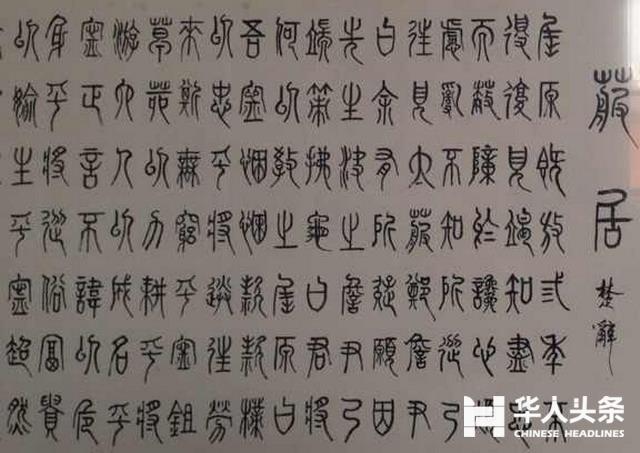 蔔居 楚辭
屈原既放弎年不
得復見竭知盡忠
而蔽障於讒心煩
慮亂不知所從乃
往見太蔔鄭詹尹
曰余有所疑願因
先生決之詹尹乃
端策拂龜曰君將
何以教之屈原曰
吾寧悃悃款款樸
以忠乎將送往勞
來斯無窮乎寧鉏
草茆以力耕乎將
游大人以成名乎
寧正言不諱以危
身乎將從俗富貴
以媮生乎寧超然
华人头条
CHINESE HEADLINES